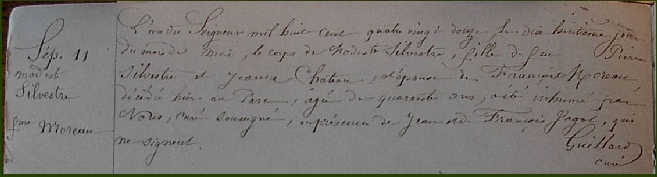 Sép. 11
modest
Silvestre
fme Moreau
L'an du Seigneur mil huit cent quatre vingt douze le dix huitième jour
du mois de mai, le corps de Modeste Silvestre, fille de feu Pierre
Silvestre et Jeanne Chateau, et épouse de François Moreau
décédée hier au Parc, âgée de quarante ans, a été inhumé par
Nous, curé soussigné, en présence de Jean et de François Jagot, qui
ne signent.
Guillard
curé